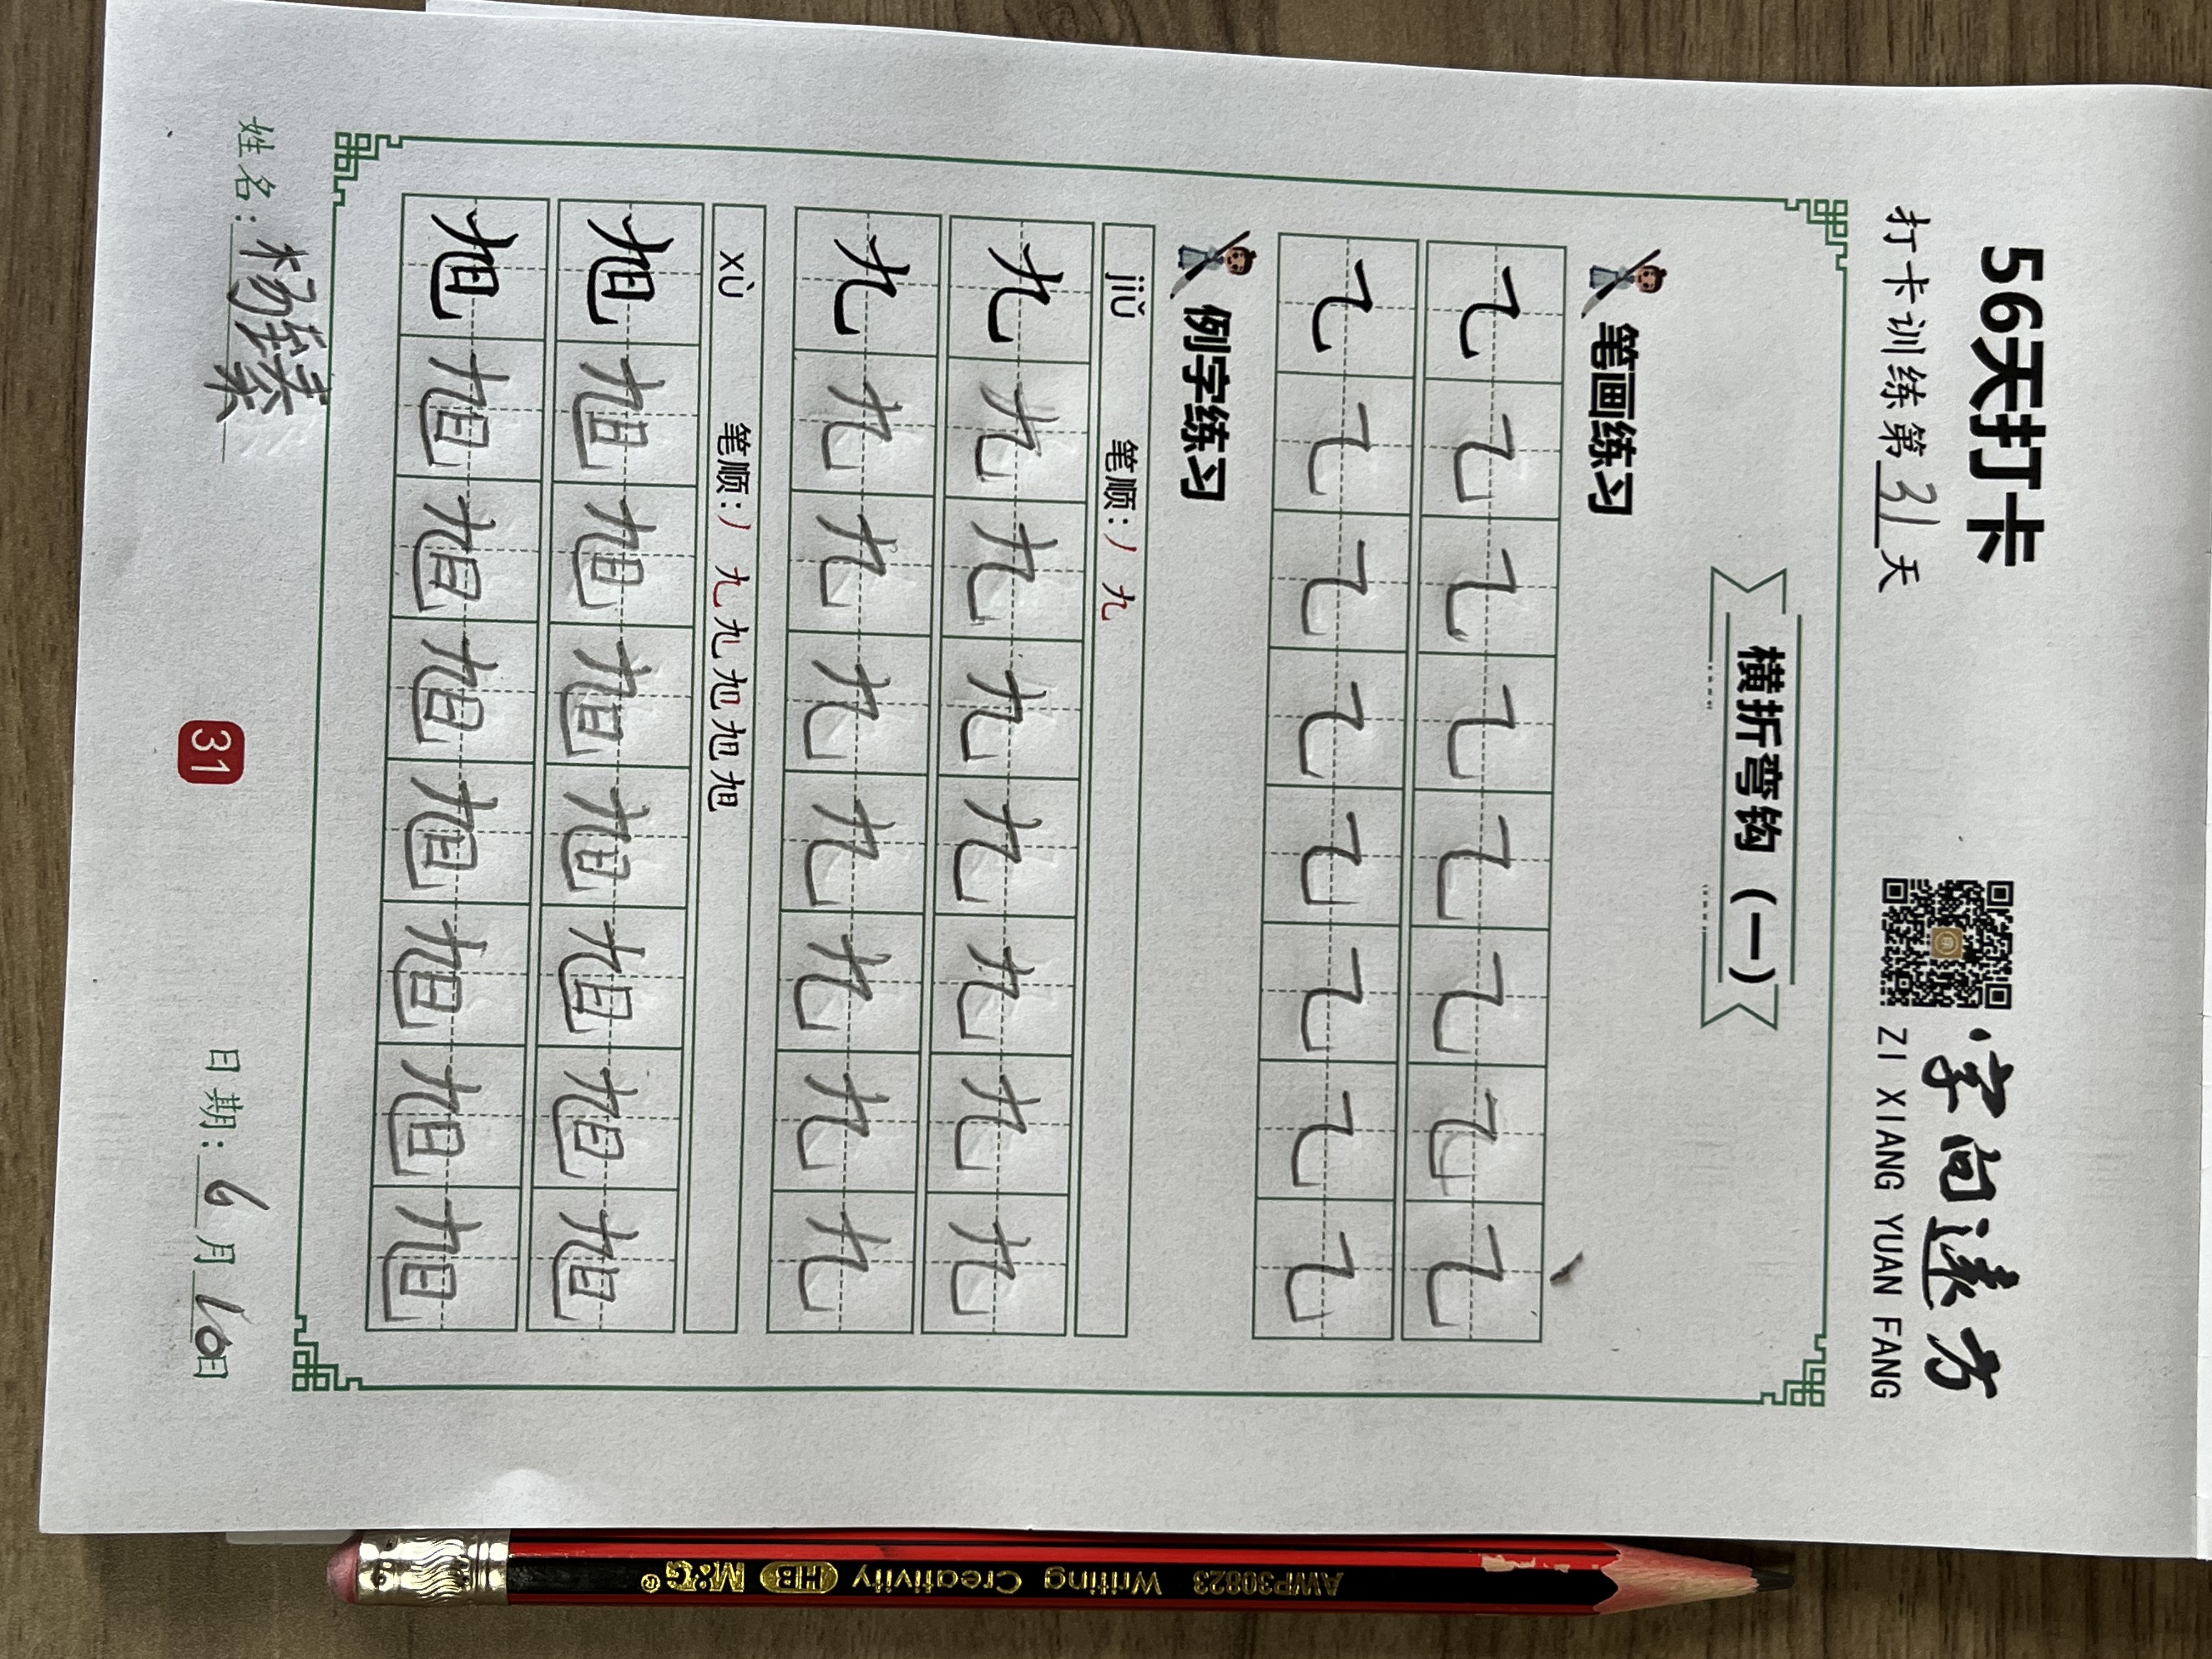 56天打卡
打卡训练第31天
字向远方
ZI XIANG YUAN FANG
横折弯钩（一）
笔画练习
㇈㇈㇈㇈㇈㇈㇈㇈
㇈㇈㇈㇈㇈㇈㇈㇈
例字练习
jiǔ 笔顺：丿 九
九九九九九九九九
九九九九九九九九
xù 笔顺：丿 九 九 旭 旭 旭
旭旭旭旭旭旭旭旭
旭旭旭旭旭旭旭旭
姓名：杨臻
31
日期：6月10日
AWP30823 Writing Creativity HB M&G®